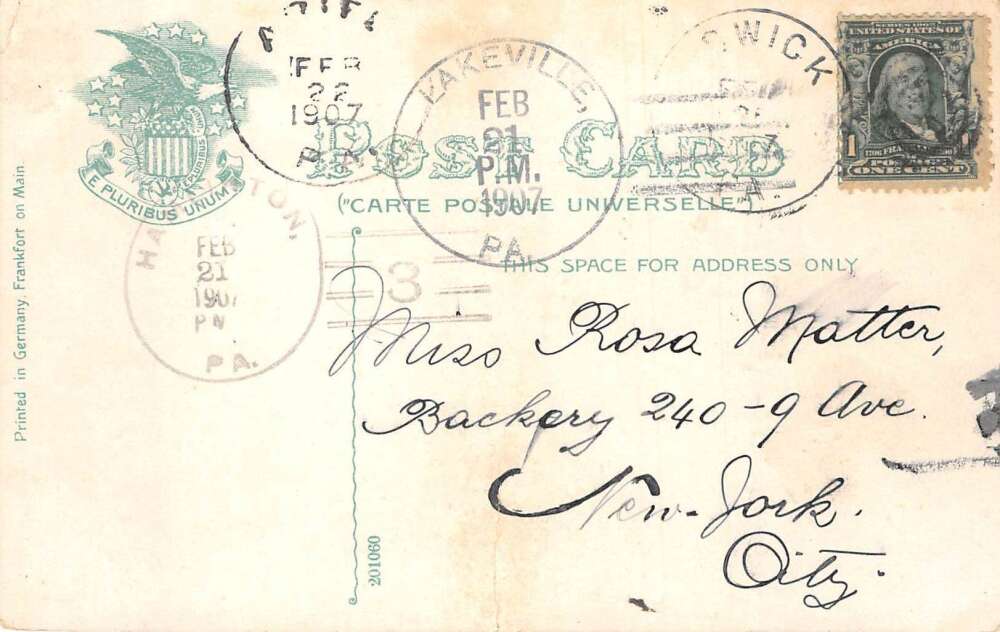 FEB
22
1907
PA.
LAKEVILLE,
FEB
21
P.M.
1907
PA.
WICK
A.
SERIES 1902
UNITED STATES OF
AMERICA
1
FRANKLIN
POSTAGE
ONE CENT
E PLURIBUS UNUM
POST CARD
("CARTE POSTALE UNIVERSELLE")
THIS SPACE FOR ADDRESS ONLY
TON,
FEB
21
1907
PM
PA.
3
Miss Rosa Matter,
Backery 240-9 Ave.
New-York.
City.
Printed in Germany, Frankfort on Main
201060